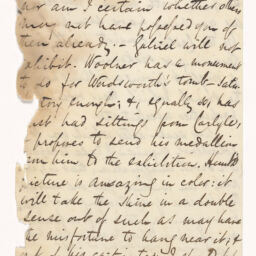 nor am I certain whether others
may not have proposed you of
ten already. — Gabriel will not
exhibit. Woolner has a monument
to do for Wordsworth's tomb — satis
tory enough; &, equally so, has
just had sittings from Carlyle,
proposes to send his medallion
from him to the exhibition. Hunt's
picture is amazing in color: it
will take the shine in a double
sense out of such as may have
the misfortune to hang near it; &